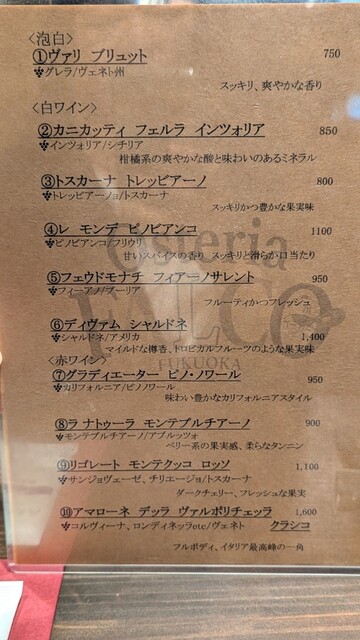 <泡白>
①ヴァリ ブリュット 750
グレラ/ヴェネト州
スッキリ、爽やかな香り
<白ワイン>
②カニカッティ フェルラ インツォリア 850
インツォリア/シチリア
柑橘系の爽やかな酸と味わいのあるミネラル
③トスカーナ トレッビアーノ 800
トレッビアーノ/トスカーナ
スッキリかつ豊かな果実味
④レ モンデ ピノビアンコ 1100
ピノビアンコ/フリウリ
甘いスパイスの香り スッキリと滑らか口当たり
⑤フェウドモナチ フィアーノサレント 950
フィーアノ/プーリア
フルーティかつフレッシュ
⑥ディヴァム シャルドネ
シャルドネ/アメリカ 1,400
マイルドな樽香、トロピカルフルーツのような果実味
<赤ワイン>
FUKUOKA
⑦グラディエーター ピノ・ノワール 950
カリフォルニア/ピノノワール
味わい豊かなカリフォルニアスタイル
⑧ラ ナトゥーラ モンテプルチアーノ 900
モンテプルチアーノ/アブルッツォ
ベリー系の果実感、柔らなタンニン
⑨リゴレート モンテクッコ ロッソ 1,100
サンジョヴェーゼ、チリエージョ/トスカーナ
ダークチェリー、フレッシュな果実
⑩アマローネ デッラ ヴァルポリチェッラ 1,600
コルヴィーナ、ロンディネッラetc/ヴェネト クラシコ
フルボディ、イタリア最高峰の一角